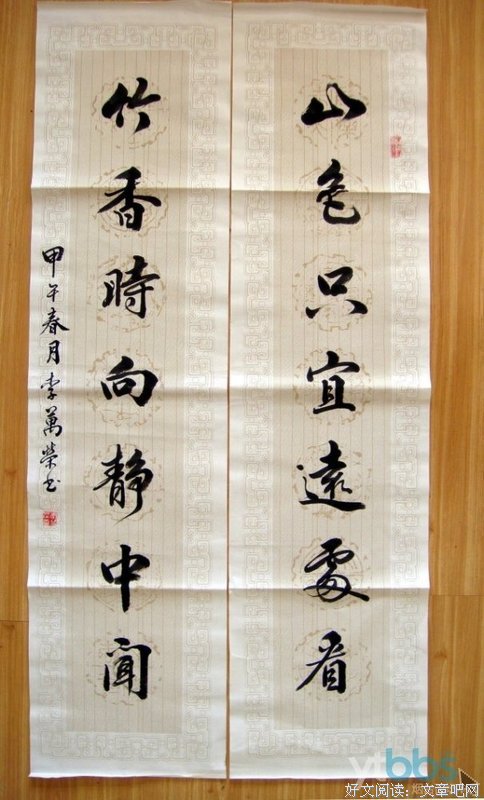 山色只宜遠處看
竹香時向靜中聞
甲午春月李萬榮书
ytbbs
好文阅读：文章吧网